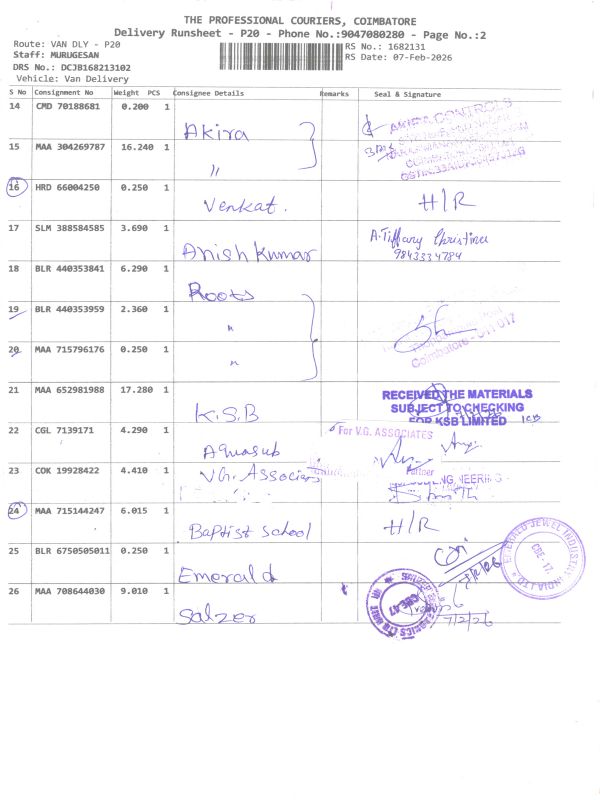 THE PROFESSIONAL COURIERS, COIMBATORE
Delivery Runsheet - P20 - Phone No.:9047080280 - Page No.:2
Route: VAN DLY - P20
RS No.: 1682131
Staff: MURUGESAN
RS Date: 07-Feb-2026
DRS No.: DCJB168213102
Vehicle: Van Delivery
S No Consignment No Weight PCS Consignee Details Remarks Seal & Signature
14 CMD 70188681 0.200 1 Akira
AKIRA CONTROLS
15 MAA 304269787 16.240 1 "
16 HRD 66004250 0.250 1 Venkat. H/R
17 SLM 388584585 3.690 1 Anish Kumar A.Tiffany Christina
9843334784
18 BLR 440353841 6.290 1 Roots
19 BLR 440353959 2.360 1 "
20 MAA 715796176 0.250 1 "
Coimbatore - 641 017
21 MAA 652981988 17.280 1 K.S.B
RECEIVED THE MATERIALS
SUBJECT TO CHECKING
FOR KSB LIMITED
22 CGL 7139171 4.290 1 Aquasub
For V.G. ASSOCIATES
Partner
23 COK 19928422 4.410 1 V.G. Associars
24 MAA 715144247 6.015 1 Baptist School H/R
25 BLR 6750505011 0.250 1 Emerald
EMERALD JEWEL INDUSTRY INDIA LTD
CBE-17
26 MAA 708644030 9.010 1 Salzer
7/2/26